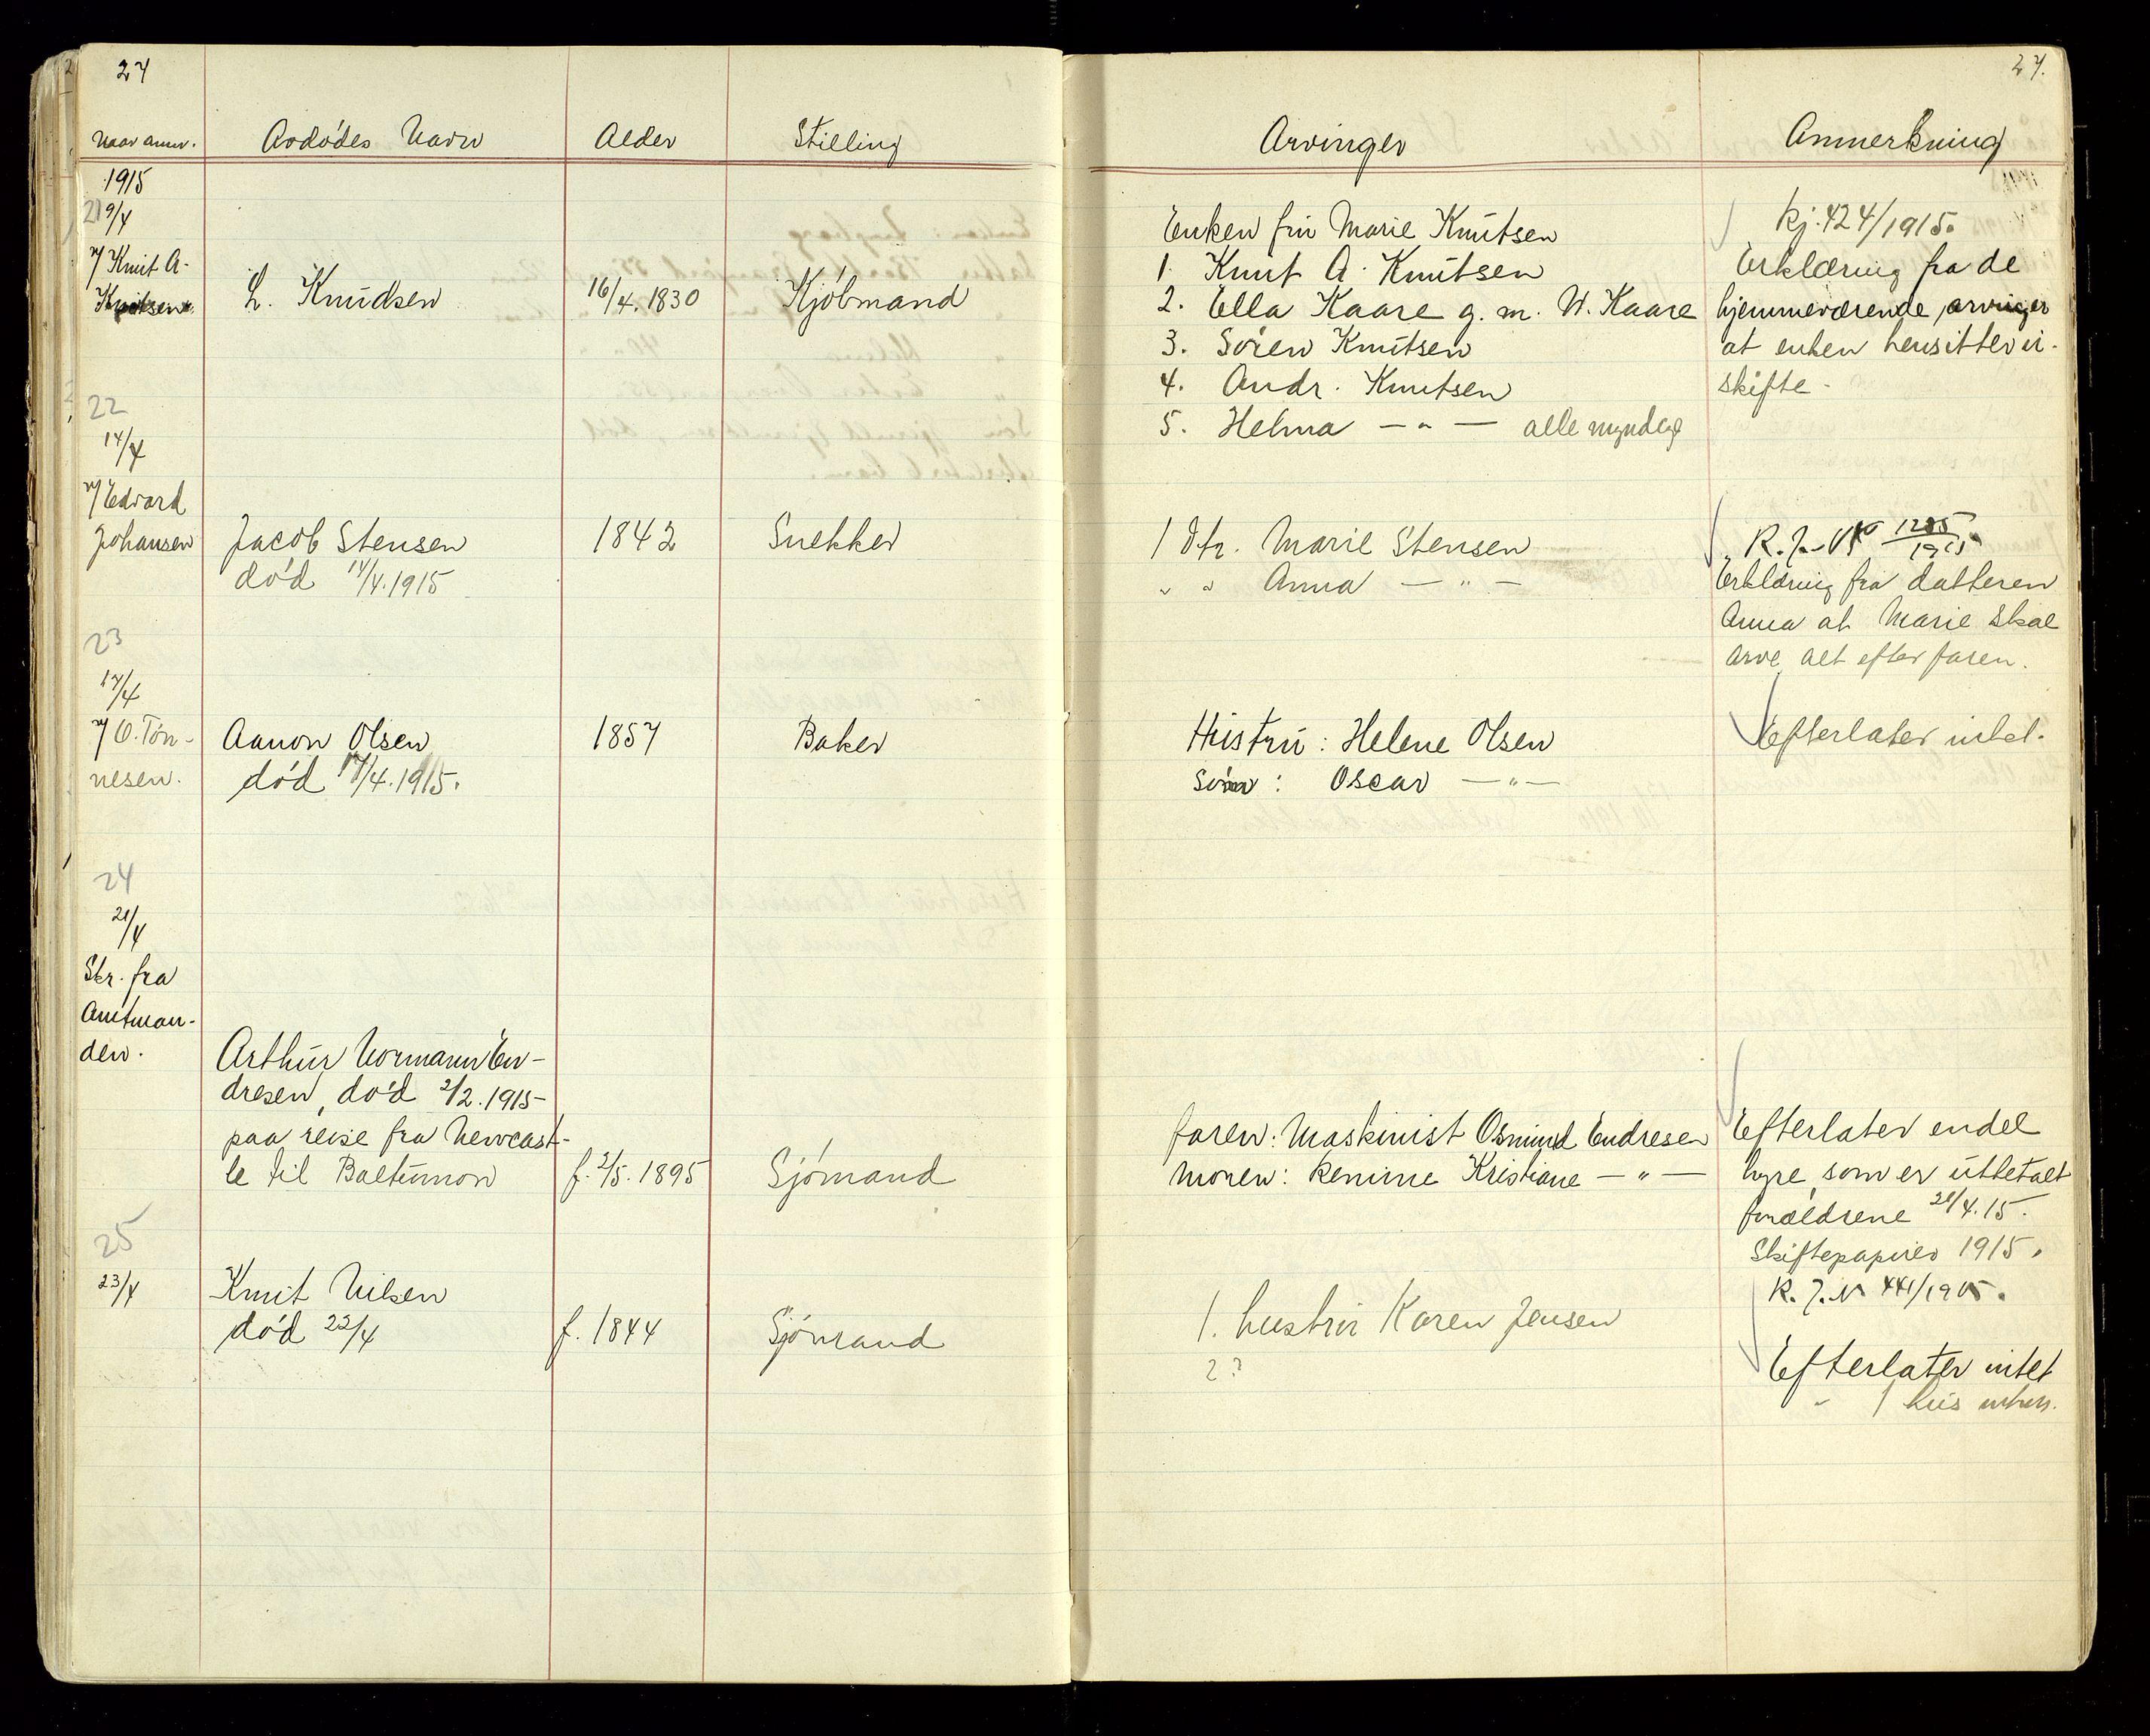 27
27.
Naar anm.
Avdödes Navn
Alder
Stilling
Arvinger
Anmerkning
1915
21 9/4
v/ Knut A.
Knutsen
L. Knudsen
16/4. 1830
Kjöbmand
Enken fru Marie Knutsen
1. Knut A. Knutsen
2. Ella Kaare g. m. W. Kaare
3. Sören Knutsen
4. Andr. Knutsen
5. Helma — " — alle myndige
kj. 424/1915.
Erklæring fra de
hjemmeværende arvinger
at enken hensitter i u-
skifte.
22
14/4
v/ Edvard
Johansen
Jacob Stensen
död 14/4.1915
1842
Snekker
1 dtr. Marie Stensen
" " Anna — " —
K. J. No 1285/1915
Erklæring fra datteren
Anna at Marie skal
arve alt efter faren.
23
17/4
v/ O. Tön-
nesen.
Aanon Olsen
död 17/4.1915.
1857
Baker
Hustru: Helene Olsen
Sön: Oscar — " —
Efterlater intet.
24
21/4
Skr. fra
Amtman-
den.
Arthur Normann En-
dresen, död 2/2.1915
paa reise fra Newcast-
le til Baltimon
f. 2/5. 1895
Sjömand
faren: Maskinist Osmund Endresen
moren: Kenine Kristiane — " —
Efterlater endel
hyre som er utbetalt
forældrene 21/4.15.
Skiftepapirer 1915.
K. J. N 441/1915.
25
23/4
Knut Nilsen
död 22/4
f. 1844
Sjömand
1. hustru Karen Jensen
2 ?
Efterlater intet
" 1 hus